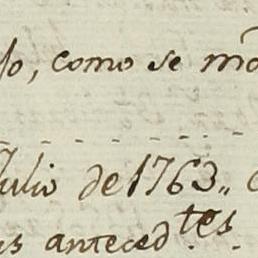 como se
Julio de 1763,,
anteced.tes